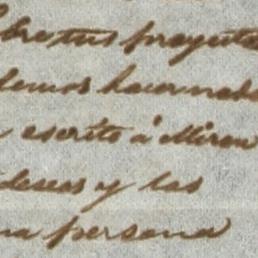 Sobre tus proyectos
demos hacer nada
escrito á Miran
deseas y las
na persona